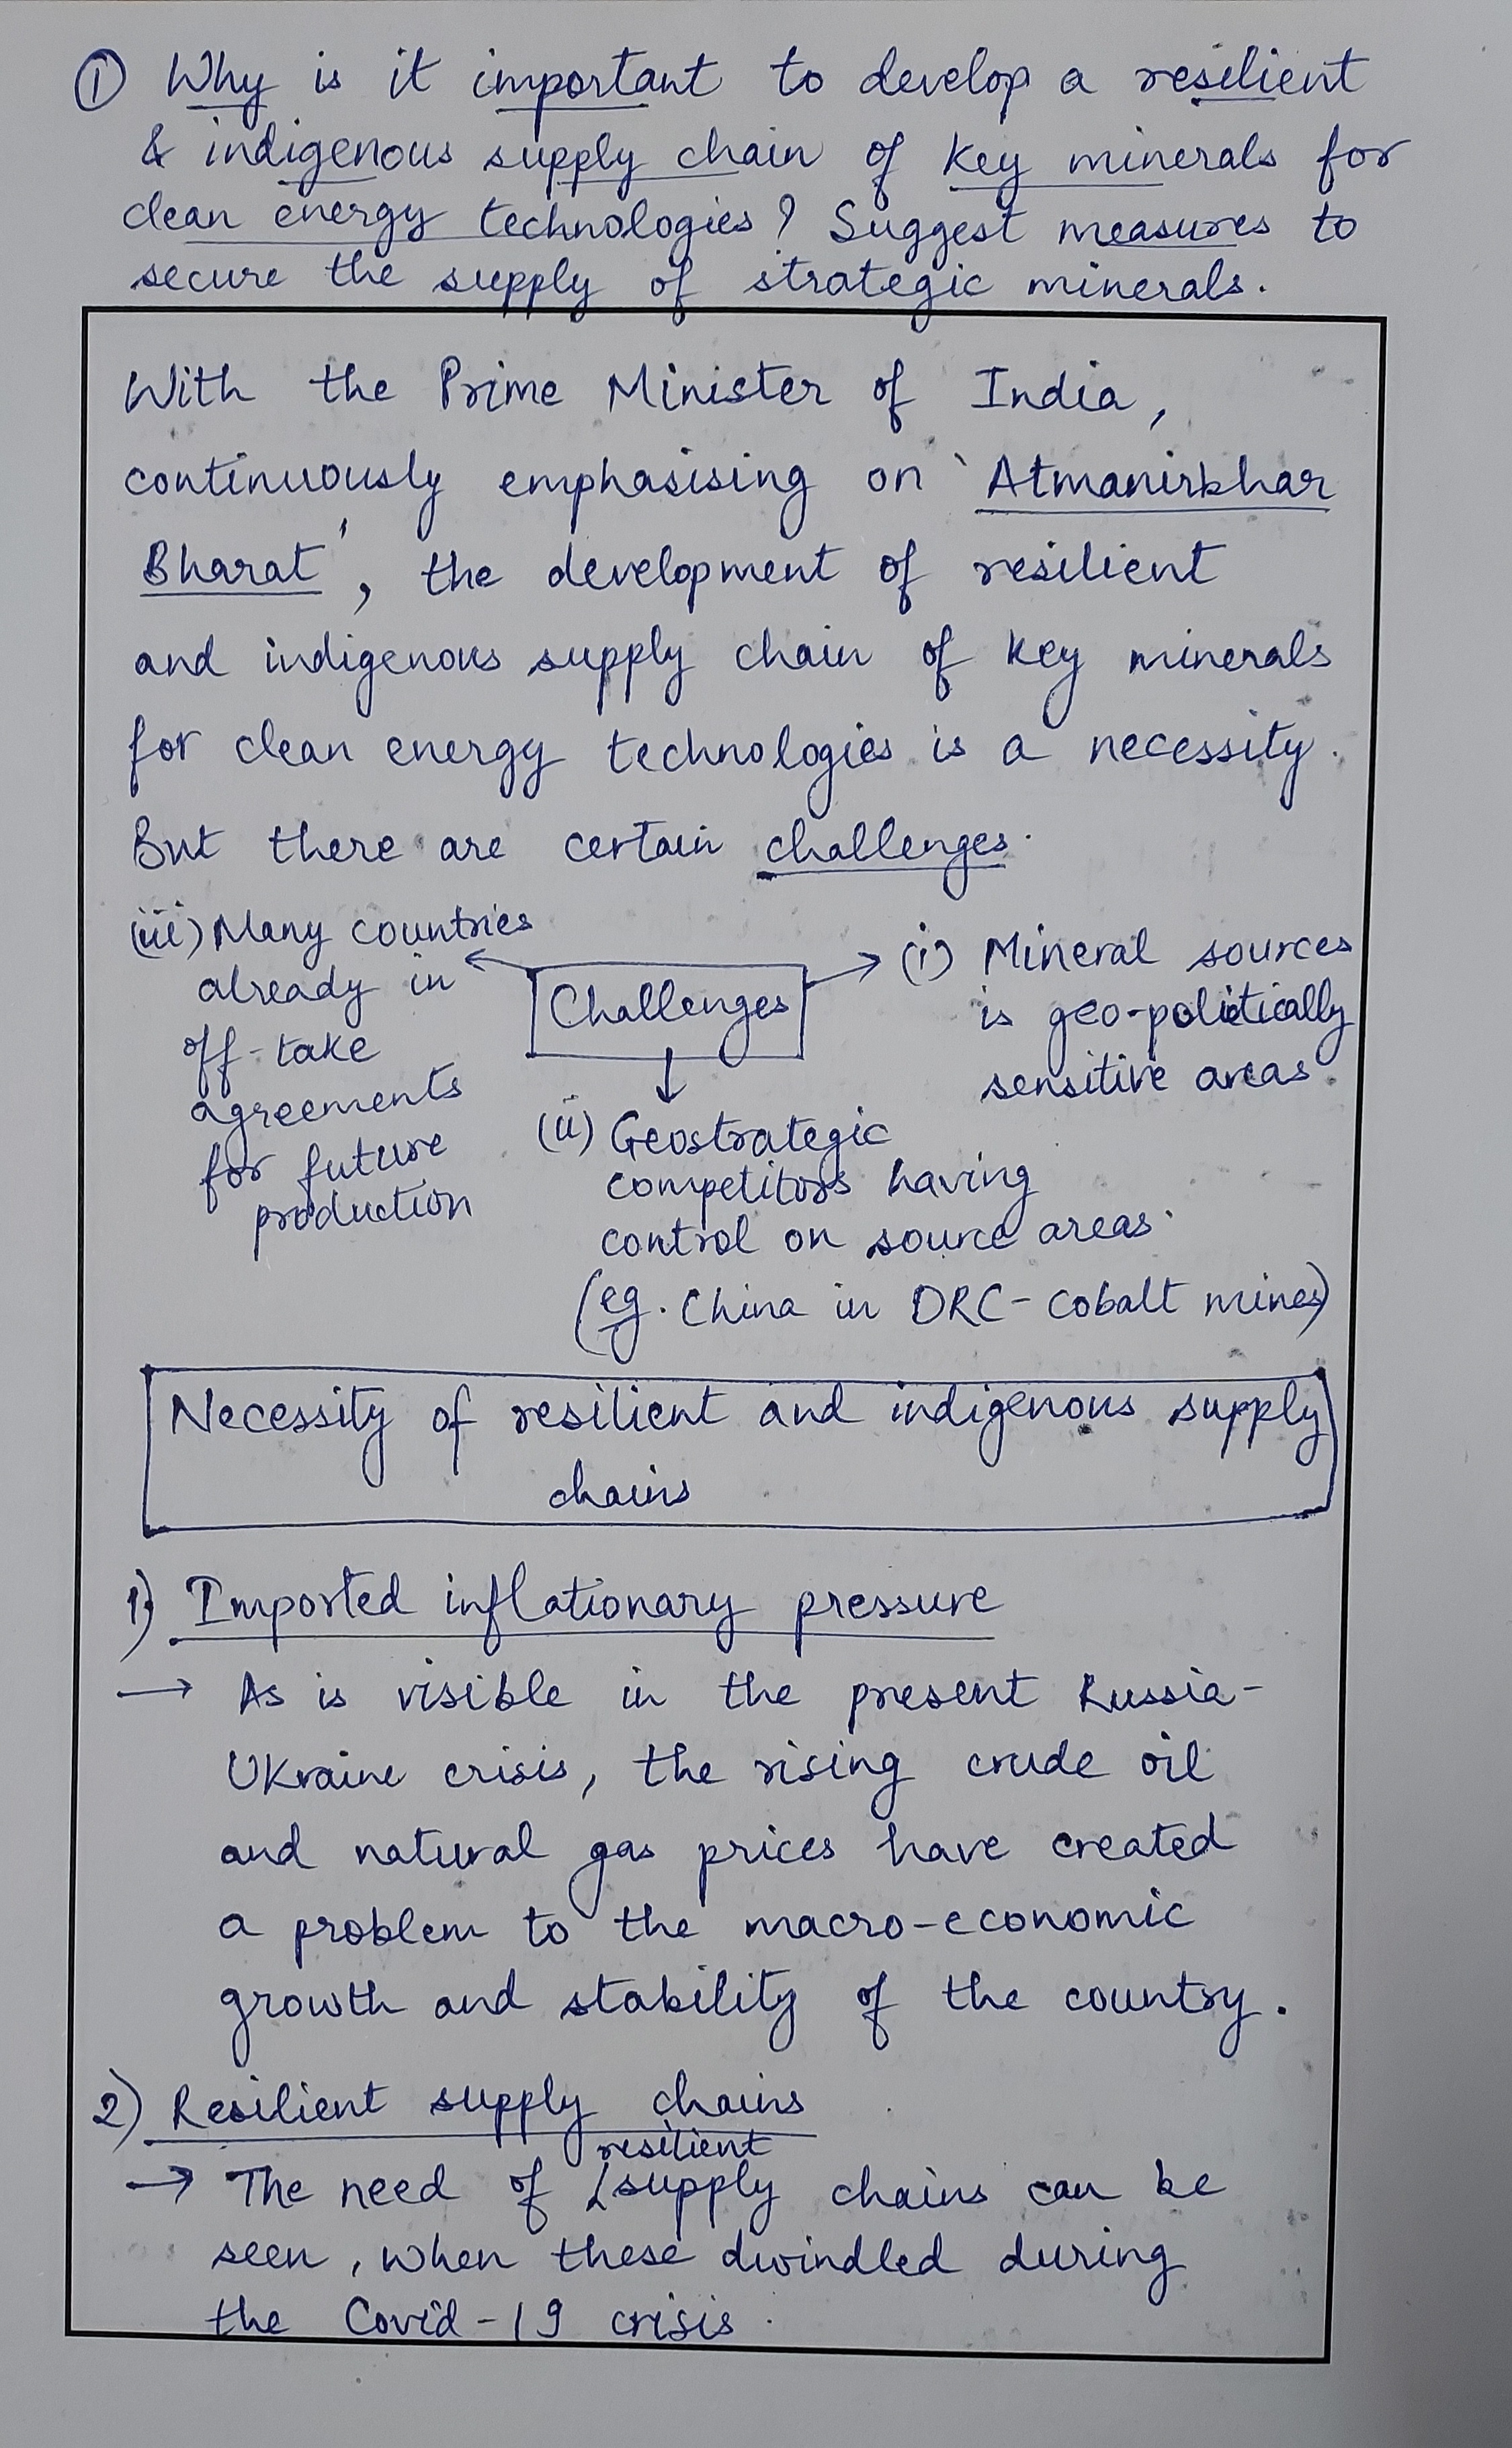 ① Why is it important to develop a resilient
& indigenous supply chain of key minerals for
clean energy technologies? Suggest measures to
secure the supply of strategic minerals.
With the Prime Minister of India,
continuously emphasising on 'Atmanirbhar
Bharat', the development of resilient
and indigenous supply chain of key minerals
for clean energy technologies is a necessity.
But there are certain challenges.
Challenges
(i) Mineral sources
is geo-politically
sensitive areas.
(ii) Geostrategic
competitors having
control on source areas.
(eg. China in DRC-Cobalt mines)
(iii) Many countries
already in
off-take
agreements
for future
production
Necessity of resilient and indigenous supply
chains
1) Imported inflationary pressure
→ As is visible in the present Russia-
Ukraine crisis, the rising crude oil
and natural gas prices have created
a problem to the macro-economic
growth and stability of the country.
2) Resilient supply chains
→ The need of resilient supply chains can be
seen, when these dwindled during
the Covid-19 crisis.